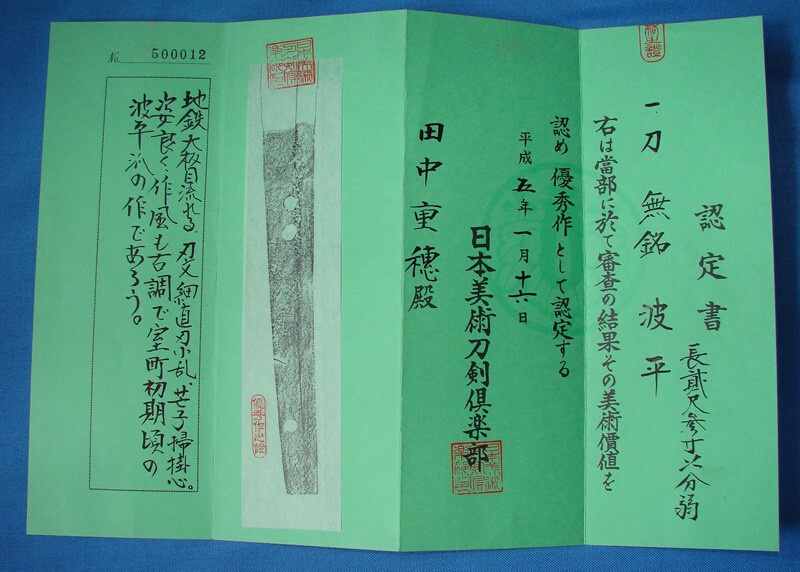 認定書
一刀 無銘 波平
長貳尺參寸六分弱
右は當部に於て審査の結果その美術價値を
認め優秀作として認定する
平成五年一月十六日
日本美術刀剣倶楽部
田中重穂殿
優秀作之證
No. 500012
地鉄大板目流れる、刃文細直刃小乱、芒子掃掛心。
姿良く、作風も古調で室町初期頃の
波平派の作であろう。